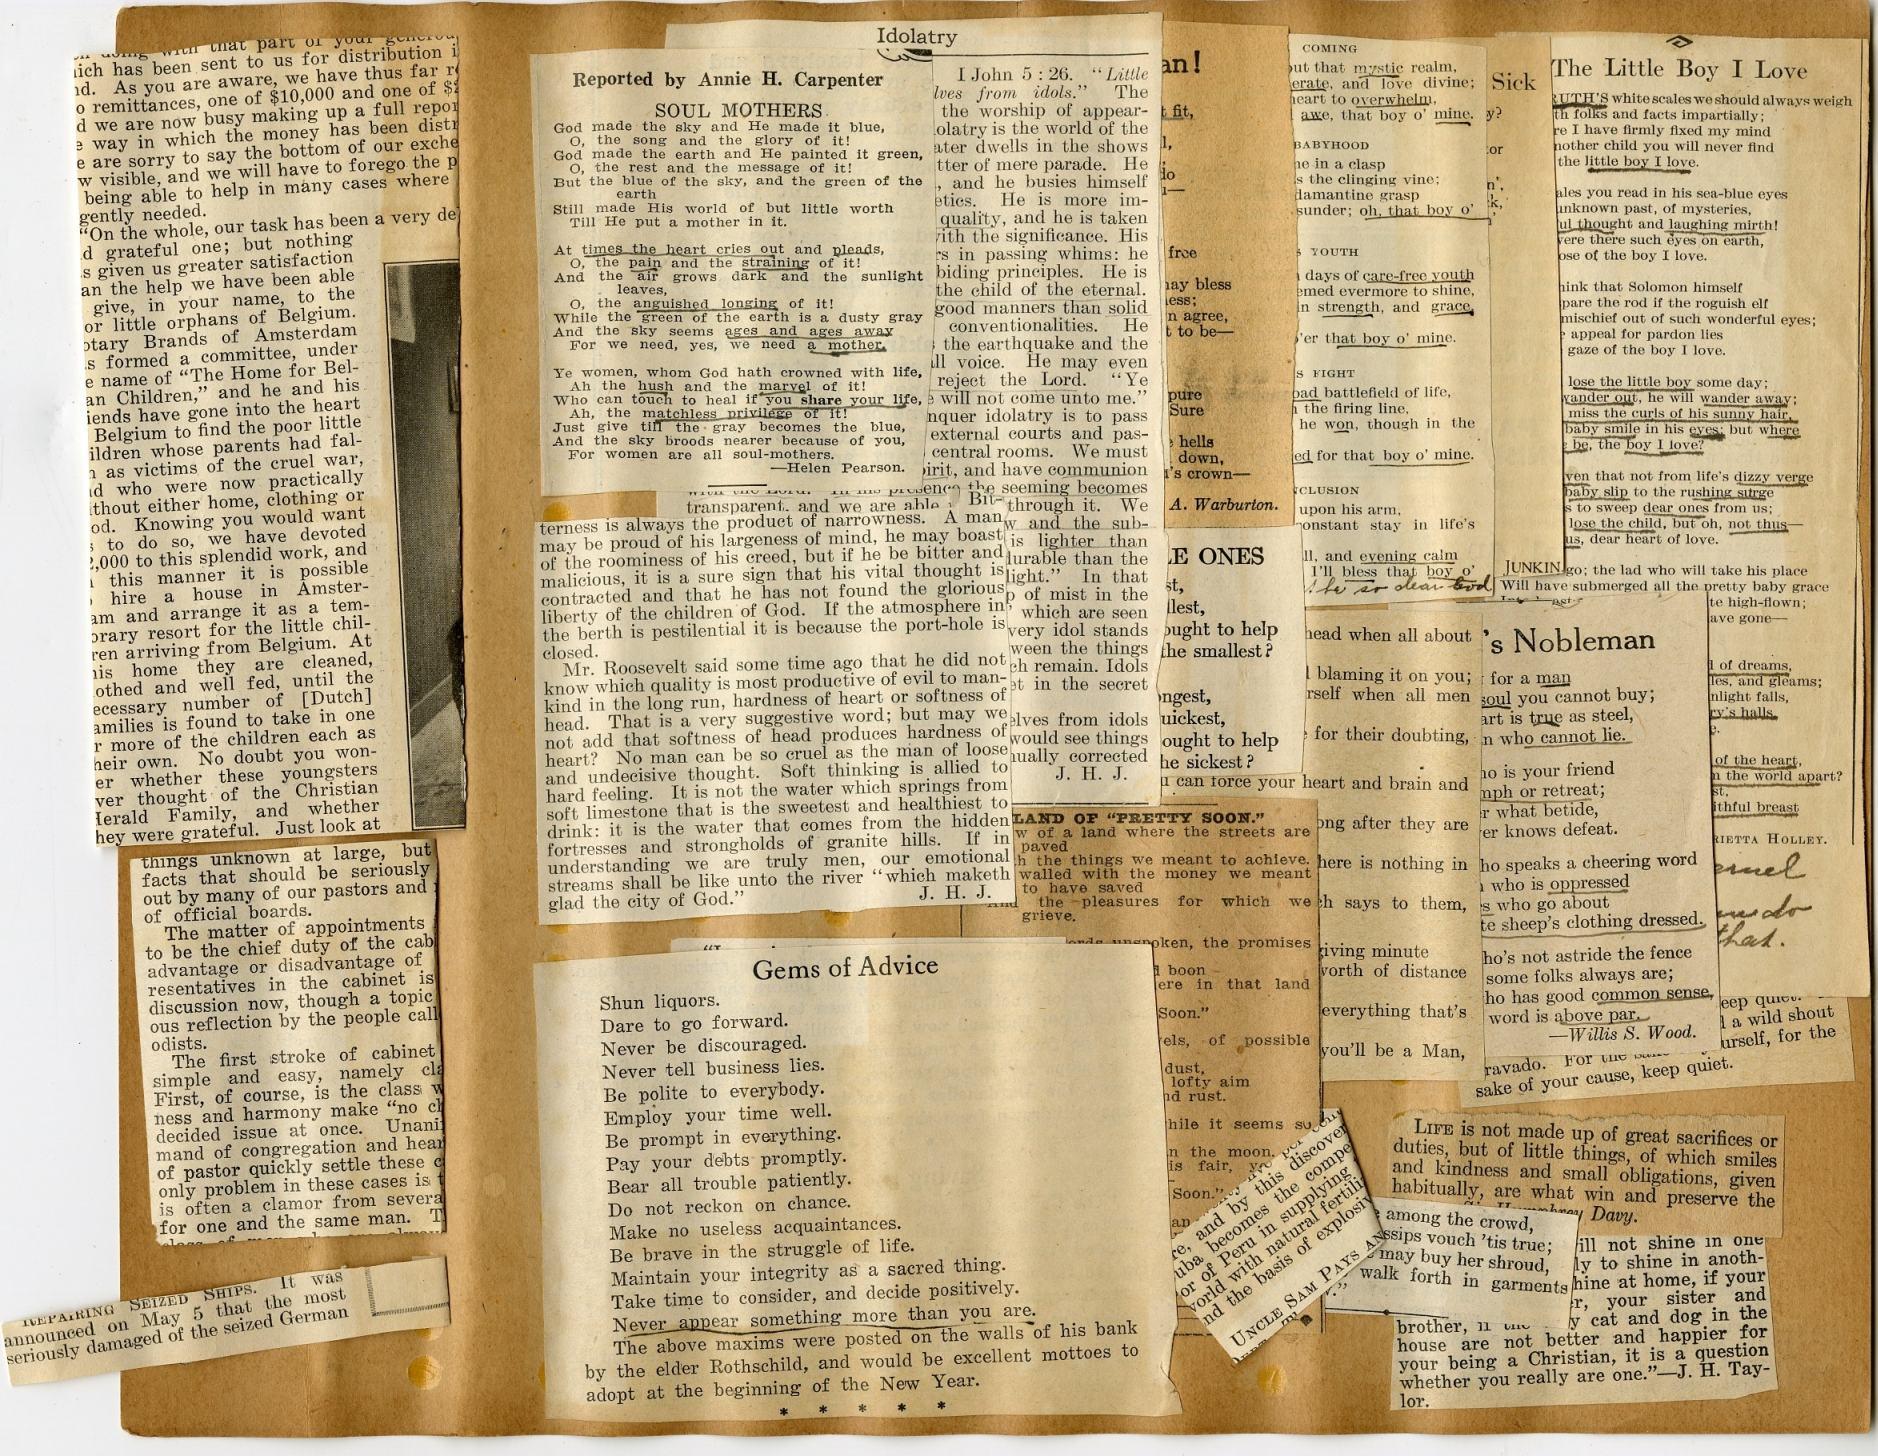 en doing with that part of your generous
ich has been sent to us for distribution i
d. As you are aware, we have thus far r
o remittances, one of $10,000 and one of $
d we are now busy making up a full repor
e way in which the money has been distr
e are sorry to say the bottom of our exche
w visible, and we will have to forego the p
being able to help in many cases where
gently needed.
"On the whole, our task has been a very de
d grateful one; but nothing
s given us greater satisfaction
an the help we have been able
give, in your name, to the
or little orphans of Belgium.
otary Brands of Amsterdam
s formed a committee, under
e name of "The Home for Bel-
an Children," and he and his
iends have gone into the heart
Belgium to find the poor little
ildren whose parents had fal-
n as victims of the cruel war,
d who were now practically
thout either home, clothing or
od. Knowing you would want
s to do so, we have devoted
2,000 to this splendid work, and
this manner it is possible
hire a house in Amster-
am and arrange it as a tem-
orary resort for the little chil-
ren arriving from Belgium. At
his home they are cleaned,
othed and well fed, until the
ecessary number of [Dutch]
amilies is found to take in one
r more of the children each as
heir own. No doubt you won-
er whether these youngsters
ver thought of the Christian
Herald Family, and whether
hey were grateful. Just look at
things unknown at large, but
facts that should be seriously
out by many of our pastors and
of official boards.
The matter of appointments
to be the chief duty of the cab
advantage or disadvantage of
resentatives in the cabinet is
discussion now, though a topic
ous reflection by the people call
odists.
The first stroke of cabinet
simple and easy, namely cla
First, of course, is the class w
ness and harmony make "no ch
decided issue at once. Unani
mand of congregation and hear
of pastor quickly settle these c
only problem in these cases is t
is often a clamor from severa
for one and the same man. T
REPAIRING SEIZED SHIPS. It was
announced on May 5 that the most
seriously damaged of the seized German
Reported by Annie H. Carpenter
SOUL MOTHERS.
God made the sky and He made it blue,
O, the song and the glory of it!
God made the earth and He painted it green,
O, the rest and the message of it!
But the blue of the sky, and the green of the
earth
Still made His world of but little worth
Till He put a mother in it.
At times the heart cries out and pleads,
O, the pain and the straining of it!
And the air grows dark and the sunlight
leaves,
O, the anguished longing of it!
While the green of the earth is a dusty gray
And the sky seems ages and ages away
For we need, yes, we need a mother.
Ye women, whom God hath crowned with life,
Ah the hush and the marvel of it!
Who can touch to heal if you share your life,
Ah, the matchless privilege of it!
Just give till the gray becomes the blue,
And the sky broods nearer because of you,
For women are all soul-mothers.
—Helen Pearson.
with the Lord. In his presence the seeming becomes
transparent, and we are able
Bit-
terness is always the product of narrowness. A man
may be proud of his largeness of mind, he may boast
of the roominess of his creed, but if he be bitter and
malicious, it is a sure sign that his vital thought is
contracted and that he has not found the glorious
liberty of the children of God. If the atmosphere in
the berth is pestilential it is because the port-hole is
closed.
Mr. Roosevelt said some time ago that he did not
know which quality is most productive of evil to man-
kind in the long run, hardness of heart or softness of
head. That is a very suggestive word; but may we
not add that softness of head produces hardness of
heart? No man can be so cruel as the man of loose
and undecisive thought. Soft thinking is allied to
hard feeling. It is not the water which springs from
soft limestone that is the sweetest and healthiest to
drink: it is the water that comes from the hidden
fortresses and strongholds of granite hills. If in
understanding we are truly men, our emotional
streams shall be like unto the river "which maketh
glad the city of God." J. H. J.
Gems of Advice
Shun liquors.
Dare to go forward.
Never be discouraged.
Never tell business lies.
Be polite to everybody.
Employ your time well.
Be prompt in everything.
Pay your debts promptly.
Bear all trouble patiently.
Do not reckon on chance.
Make no useless acquaintances.
Be brave in the struggle of life.
Maintain your integrity as a sacred thing.
Take time to consider, and decide positively.
Never appear something more than you are.
The above maxims were posted on the walls of his bank
by the elder Rothschild, and would be excellent mottoes to
adopt at the beginning of the New Year.
* * * * *
Idolatry
I John 5 : 26. "Little
lves from idols." The
the worship of appear-
olatry is the world of the
ater dwells in the shows
tter of mere parade. He
, and he busies himself
etics. He is more im-
quality, and he is taken
ith the significance. His
rs in passing whims: he
biding principles. He is
the child of the eternal.
good manners than solid
conventionalities. He
the earthquake and the
ll voice. He may even
reject the Lord. "Ye
e will not come unto me."
nquer idolatry is to pass
external courts and pas-
central rooms. We must
pirit, and have communion
through it. We
w and the sub-
is lighter than
durable than the
light." In that
p of mist in the
which are seen
very idol stands
ween the things
ch remain. Idols
et in the secret
elves from idols
would see things
nually corrected
J. H. J.
an!
t fit,
free
nay bless
ness;
n agree,
t to be—
pure
Sure
hells
down,
's crown—
A. Warburton.
LE ONES
st,
llest,
ought to help
the smallest?
ongest,
uickest,
ought to help
he sickest?
COMING
out that mystic realm,
erate, and love divine;
heart to overwhelm,
awe, that boy o' mine.
BABYHOOD
ne in a clasp
s the clinging vine;
damantine grasp
sunder; oh, that boy o'
YOUTH
days of care-free youth
emed evermore to shine,
n strength, and grace,
'er that boy o' mine.
S FIGHT
oad battlefield of life,
the firing line,
he won, though in the
ed for that boy o' mine.
NCLUSION
upon his arm,
onstant stay in life's
ll, and evening calm
I'll bless that boy o'
be so dear God
Sick
y?
or
JUNKIN
The Little Boy I Love
RUTH'S white scales we should always weigh
th folks and facts impartially;
re I have firmly fixed my mind
nother child you will never find
the little boy I love.
ales you read in his sea-blue eyes
unknown past, of mysteries,
ul thought and laughing mirth!
were there such eyes on earth,
ose of the boy I love.
hink that Solomon himself
pare the rod if the roguish elf
mischief out of such wonderful eyes;
appeal for pardon lies
gaze of the boy I love.
lose the little boy some day;
wander out, he will wander away;
miss the curls of his sunny hair,
baby smile in his eyes; but where
be, the boy I love?
ven that not from life's dizzy verge
baby slip to the rushing surge
s to sweep dear ones from us;
lose the child, but oh, not thus—
us, dear heart of love.
go; the lad who will take his place
Will have submerged all the pretty baby grace
te high-flown;
ave gone—
l of dreams,
les, and gleams;
nlight falls,
ry's halls.
of the heart,
n the world apart?
st,
ithful breast
RIETTA HOLLEY.
do
that.
head when all about
blaming it on you;
rself when all men
for their doubting,
u can force your heart and brain and
ong after they are
here is nothing in
ch says to them,
giving minute
worth of distance
everything that's
you'll be a Man,
's Nobleman
for a man
soul you cannot buy;
art is true as steel,
n who cannot lie.
ho is your friend
mph or retreat;
r what betide,
er knows defeat.
ho speaks a cheering word
who is oppressed
s who go about
te sheep's clothing dressed.
ho's not astride the fence
some folks always are;
ho has good common sense,
word is above par.
—Willis S. Wood.
LAND OF "PRETTY SOON."
w of a land where the streets are
paved
h the things we meant to achieve.
walled with the money we meant
to have saved
And the pleasures for which we
grieve.
ords unspoken, the promises
boon
ere in that land
Soon."
els, of possible
dust,
lofty aim
nd rust.
hile it seems so
n the moon,
is fair, ye
Soon."
eep quiet.
l a wild shout
ravado. For the sake yourself, for the
sake of your cause, keep quiet.
LIFE is not made up of great sacrifices or
duties, but of little things, of which smiles
and kindness and small obligations, given
habitually, are what win and preserve the
Humphrey Davy.
re, and by this discover
uba becomes the compe
or of Peru in supplying
world with natural fertili
nd the basis of explosiv
UNCLE SAM PAYS AN
among the crowd,
ssips vouch 'tis true;
may buy her shroud,
walk forth in garments
ill not shine in one
ly to shine in anoth-
hine at home, if your
r, your sister and
brother, if the y cat and dog in the
house are not better and happier for
your being a Christian, it is a question
whether you really are one."—J. H. Tay-
lor.